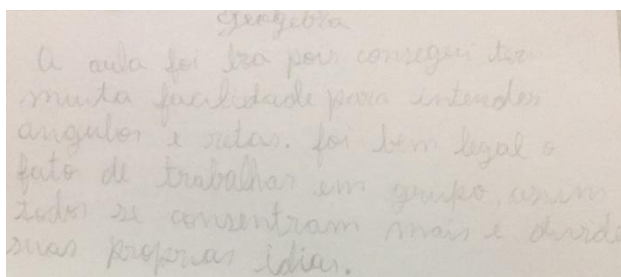 Geogebra
A aula foi boa pois consegui ter
muita facilidade para intender
angulos e retas. foi bem legal o
fato de trabalhar em grupo, assim
todos se consentram mais e divide
suas proprias idias.